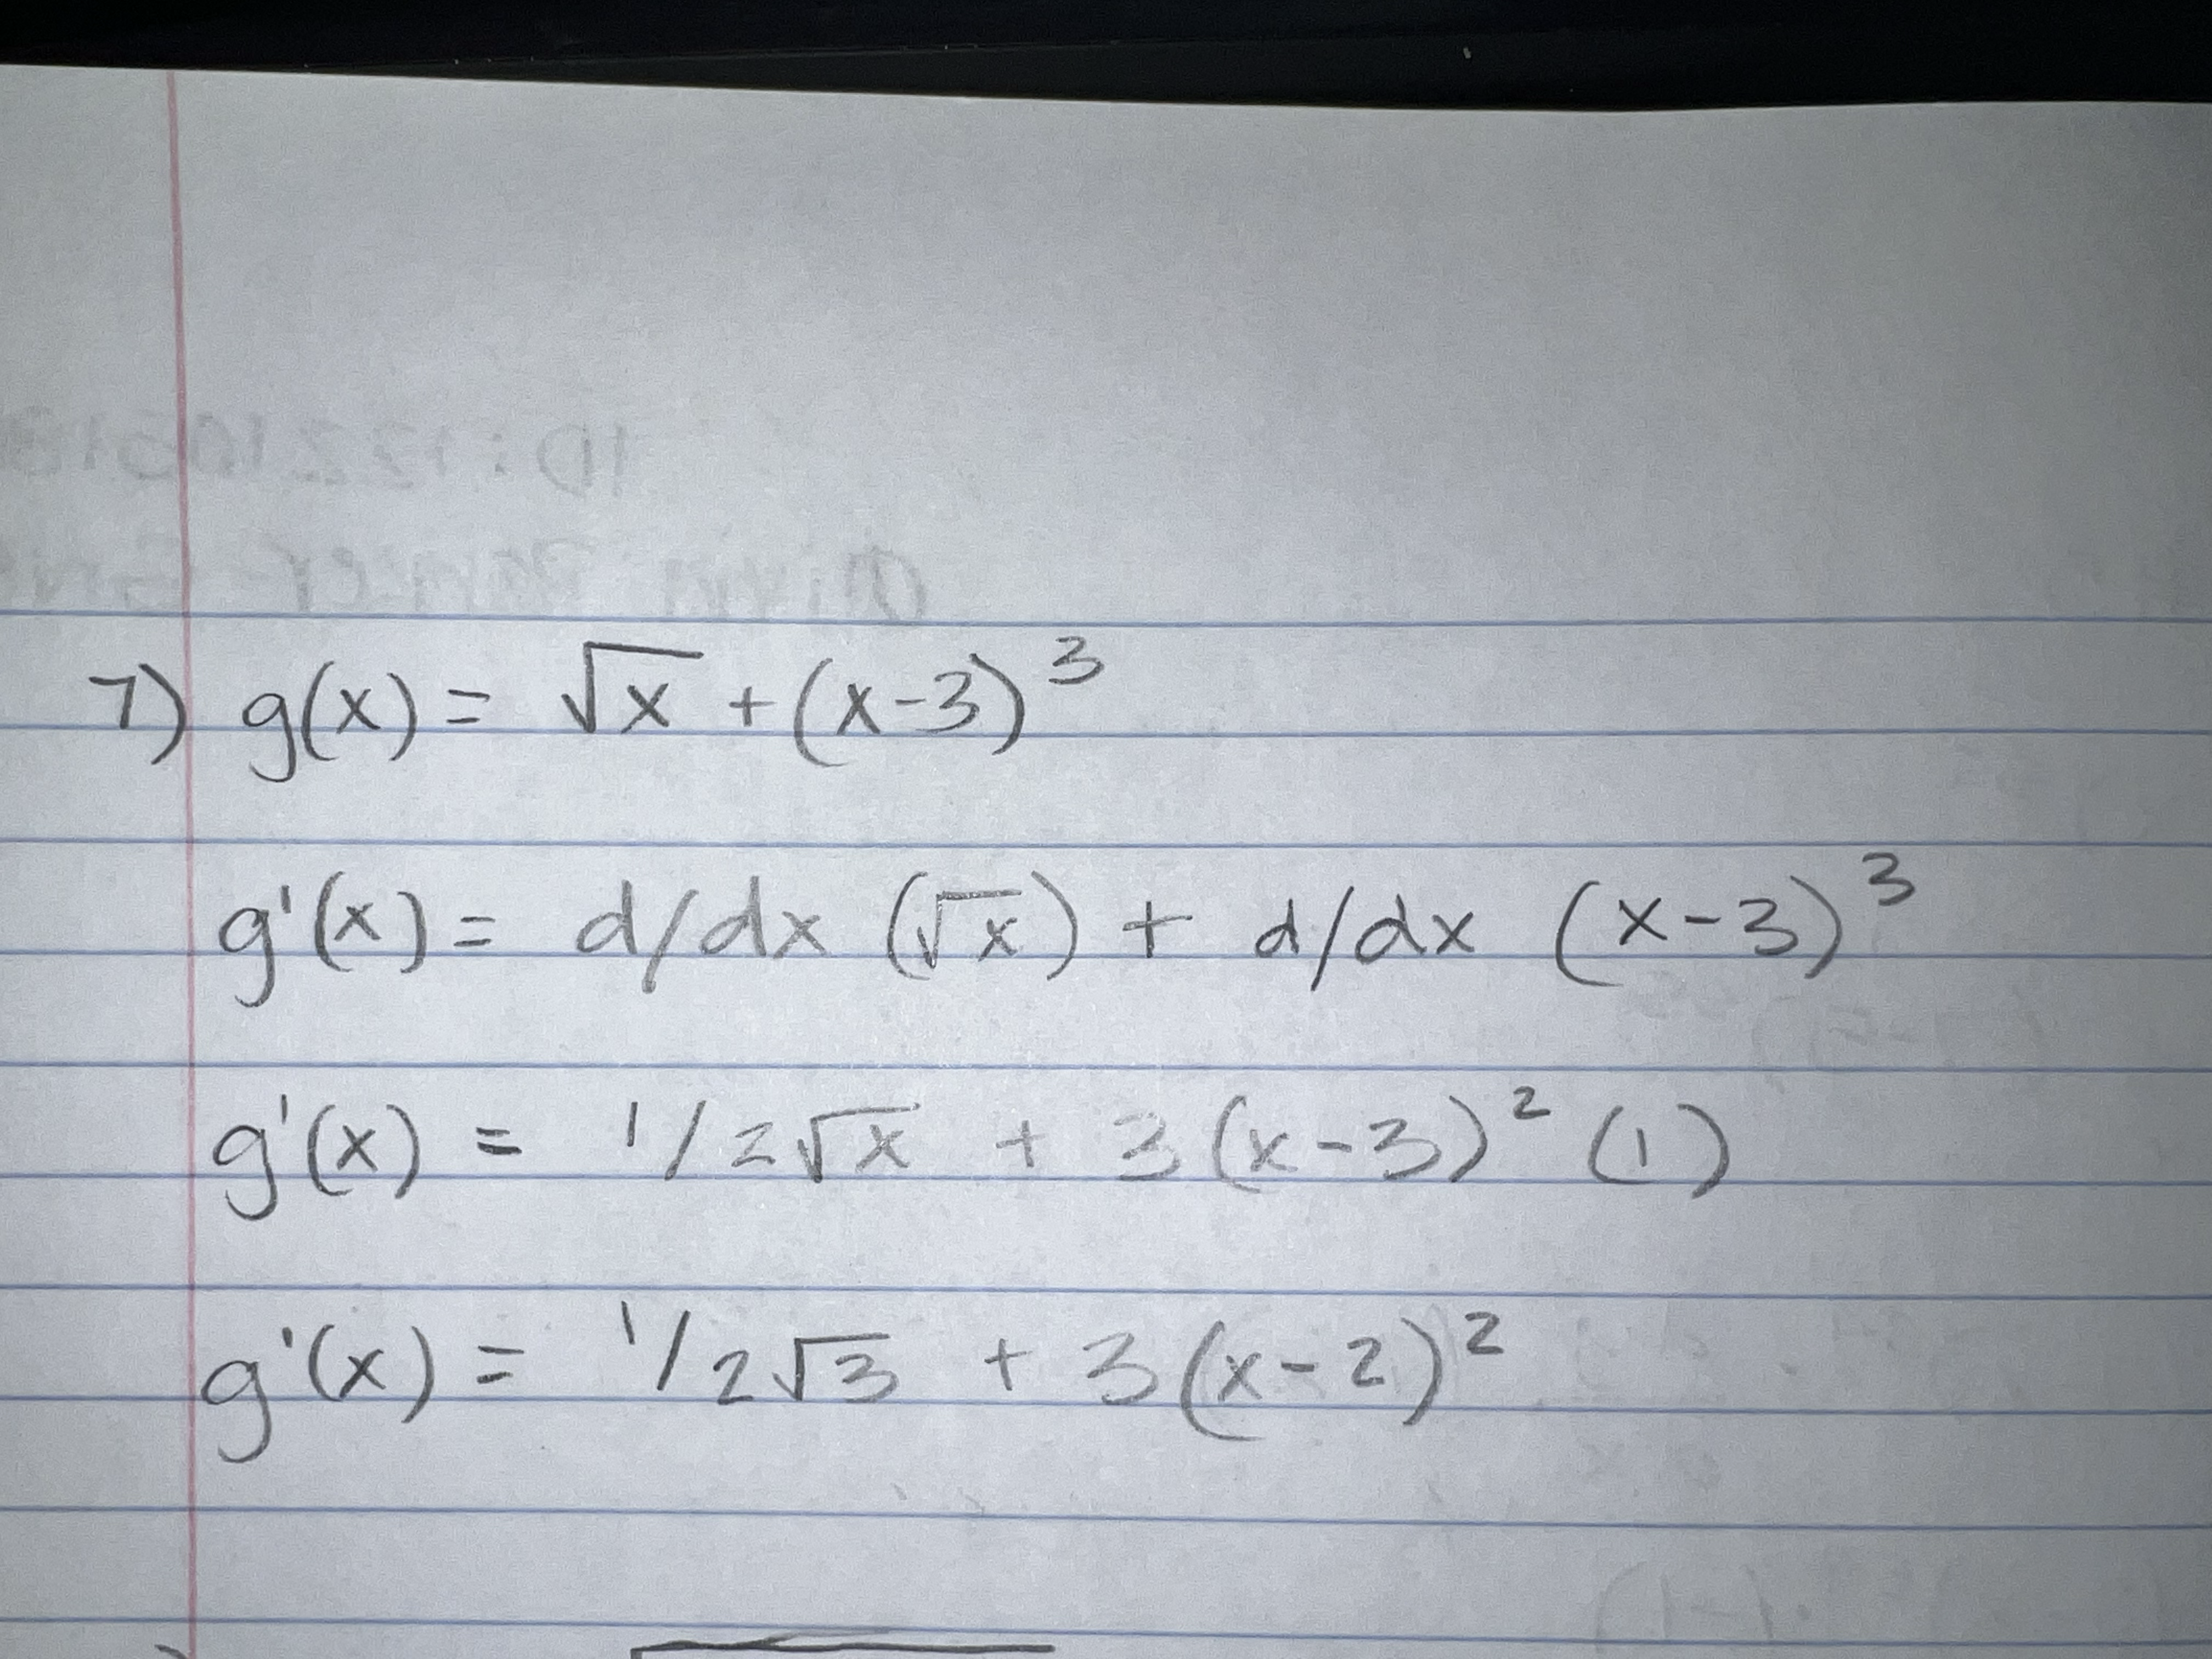 7) g(x) = √x + (x-3)³
g'(x) = d/dx (√x) + d/dx (x-3)³
g'(x) = 1/2√x + 3(x-3)² (1)
g'(x) = 1/2√3 + 3(x-2)²